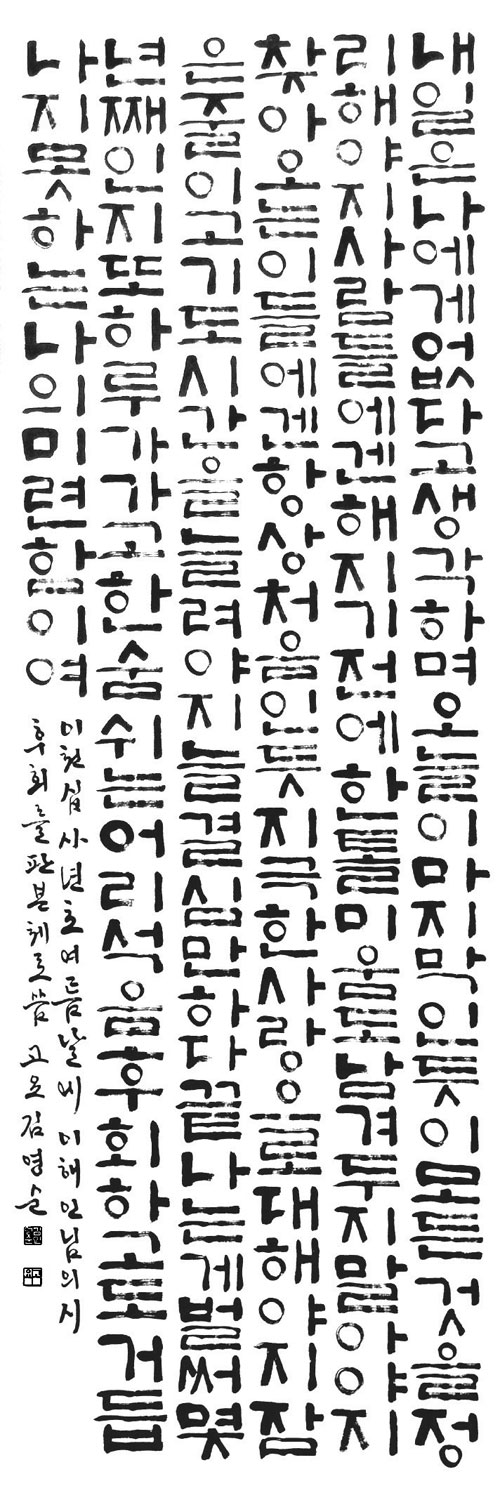 내일은나에게없다고생각하며오늘이마지막인듯이모든것을정
리해야지사람들에겐해지기전에한톨미움도남겨두지말아야지
찾아오는이들에겐항상처음인듯지극한사랑으로대해야지잠
은줄이고기도시간을늘려야지늘결심만하다끝나는게벌써몇
년째인지또하루가가고한숨쉬는어리석음후회하고도거듭
나지못하는나의미련함이여
이천십사년초여름날에 이해인님의시
후회를판본체로씀 김영순